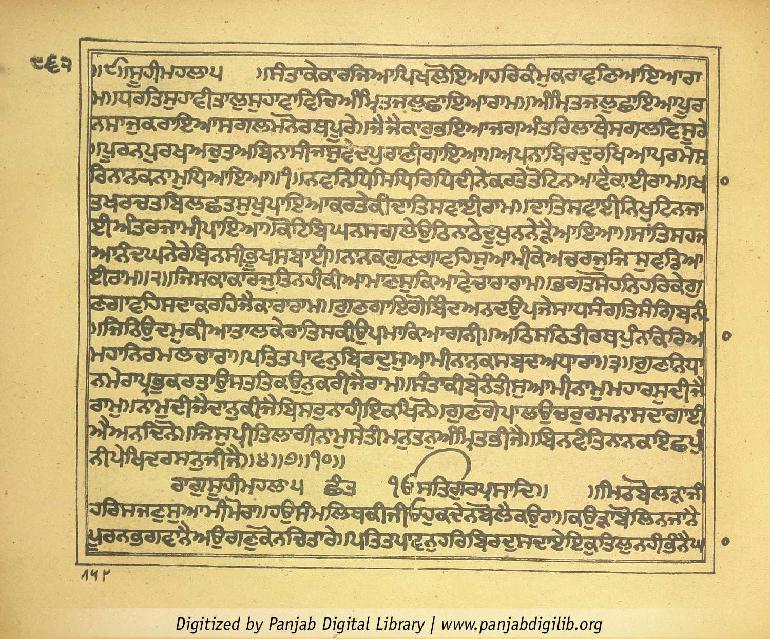 ੯੬੨
॥੯॥ਸੂਹੀਮਹਲਾ੫ ॥ਸੰਤਾਕੇਕਾਰਜਿਆਪਿਖਲੋਇਆਹਰਿਕੰਮੁਕਰਾਵਣਿਆਇਆਰਾ
ਮ॥ਧਰਤਿਸੁਹਾਵੀਤਾਲੁਸੁਹਾਵਾਵਿਚਿਅੰਮ੍ਰਿਤਜਲੁਛਾਇਆਰਾਮ॥ਅੰਮ੍ਰਿਤਜਲੁਛਾਇਆਪੂਰ
ਨਸਾਜੁਕਰਾਇਆਸਗਲਮਨੋਰਥਪੂਰੇ॥ਜੈਜੈਕਾਰੁਭਇਆਜਗਅੰਤਰਿਲਾਥੇਸਗਲਵਿਸੂਰੇ
॥ਪੂਰਨਪੁਰਖਅਚੁਤਅਬਿਨਾਸੀਜਸੁਵੇਦਪੁਰਾਣੀਗਾਇਆ॥ਅਪਨਾਬਿਰਦੁਰਖਿਆਪਰਮੇਸ
ਰਿਨਾਨਕਨਾਮੁਧਿਆਇਆ॥੧॥ਨਵਨਿਧਿਸਿਧਿਰਿਧਿਦੀਨੇਕਰਤੇਤੋਟਿਨਆਵੈਕਾਈਰਾਮ॥ਖਾ
ਤਖਰਚਤਬਿਲਛਤਸੁਖੁਪਾਇਆਕਰਤੇਕੀਦਾਤਿਸਵਾਈਰਾਮ॥ਦਾਤਿਸਵਾਈਨਿਖੁਟਿਨਜਾ
ਈਅੰਤਰਜਾਮੀਪਾਇਆ॥ਕੋਟਿਬਿਘਨਸਗਲੇਉਠਿਨਾਠੇਦੂਖੁਨਨੇੜੈਆਇਆ॥ਸਾਂਤਿਸਹਜ
ਆਨੰਦਘਨੇਰੇਬਿਨਸੀਭੂਖਸਬਾਈ॥ਨਾਨਕਗੁਣਗਾਵਹਿਸੁਆਮੀਕੇਅਚਰਜੁਜਿਸੁਵਡਿਆ
ਈਰਾਮ॥੨॥ਜਿਸਕਾਕਾਰਜੁਤਿਨਹੀਕੀਆਮਾਣਸੁਕਿਆਵੇਚਾਰਾਰਾਮ॥ਭਗਤਸੋਹਨਿਹਰਿਕੇਗੁ
ਣਗਾਵਹਿਸਦਾਕਰਹਿਜੈਕਾਰਾਰਾਮ॥ਗੁਣਗਾਇਗੋਬਿੰਦਅਨਦਉਪਜੇਸਾਧਸੰਗਤਿਸੰਗਿਬਨੀ
॥ਜਿਨਿਉਦਮੁਕੀਆਤਾਲਕੇਰਾਤਿਸਕੀਉਪਮਾਕਿਆਗਨੀ॥ਅਠਸਠਿਤੀਰਥਪੁੰਨਕਿਰਿਆ
ਮਹਾਨਿਰਮਲਚਾਰਾ॥ਪਤਿਤਪਾਵਨੁਬਿਰਦੁਸੁਆਮੀਨਾਨਕਸਬਦਅਧਾਰਾ॥੩॥ਗੁਣਨਿਧਾ
ਨਮੇਰਾਪ੍ਰਭੁਕਰਤਾਉਸਤਤਿਕਉਨੁਕਰੀਜੈਰਾਮ॥ਸੰਤਾਕੀਬੇਨੰਤੀਸੁਆਮੀਨਾਮੁਮਹਾਰਸੁਦੀਜੈ
ਰਾਮ॥ਨਾਮੁਦੀਜੈਦਾਨੁਕੀਜੈਬਿਸਰੁਨਾਹੀਇਕਖਿਨੋ॥ਗੁਣਗੋਪਾਲਉਚਰੁਰਸਨਾਸਦਾਗਾਈ
ਐਅਨਦਿਨੋ॥ਜਿਸੁਪ੍ਰੀਤਿਲਾਗੀਨਾਮਸੇਤੀਮਨੁਤਨੁਅੰਮ੍ਰਿਤਭੀਜੈ॥ਬਿਨਵੰਤਿਨਾਨਕਇਛਪੁੰ
ਨੀਪੇਖਿਦਰਸਨੁਜੀਜੈ॥੪॥੭॥੧੦॥
ਰਾਗੁਸੂਹੀਮਹਲਾ੫ ਛੰਤ ੴਸਤਿਗੁਰਪ੍ਰਸਾਦਿ॥ ॥ਮਿਠਬੋਲੜਾਜੀ
ਹਰਿਸਜਣੁਸੁਆਮੀਮੋਰਾ॥ਹਉਸੰਮਲਿਥਕੀਜੀਓਹੁਕਦੇਨਬੋਲੈਕਉਰਾ॥ਕਉੜਾਬੋਲਿਨਜਾਨੈ
ਪੂਰਨਭਗਵਾਨੈਅਉਗਣੁਕੋਨਚਿਤਾਰੇ॥ਪਤਿਤਪਾਵਨੁਹਰਿਬਿਰਦੁਸਦਾਏਇਕੁਤਿਲੁਨਹੀਭੰਨੈਘਾ
Digitized by Panjab Digital Library | www.panjabdigilib.org